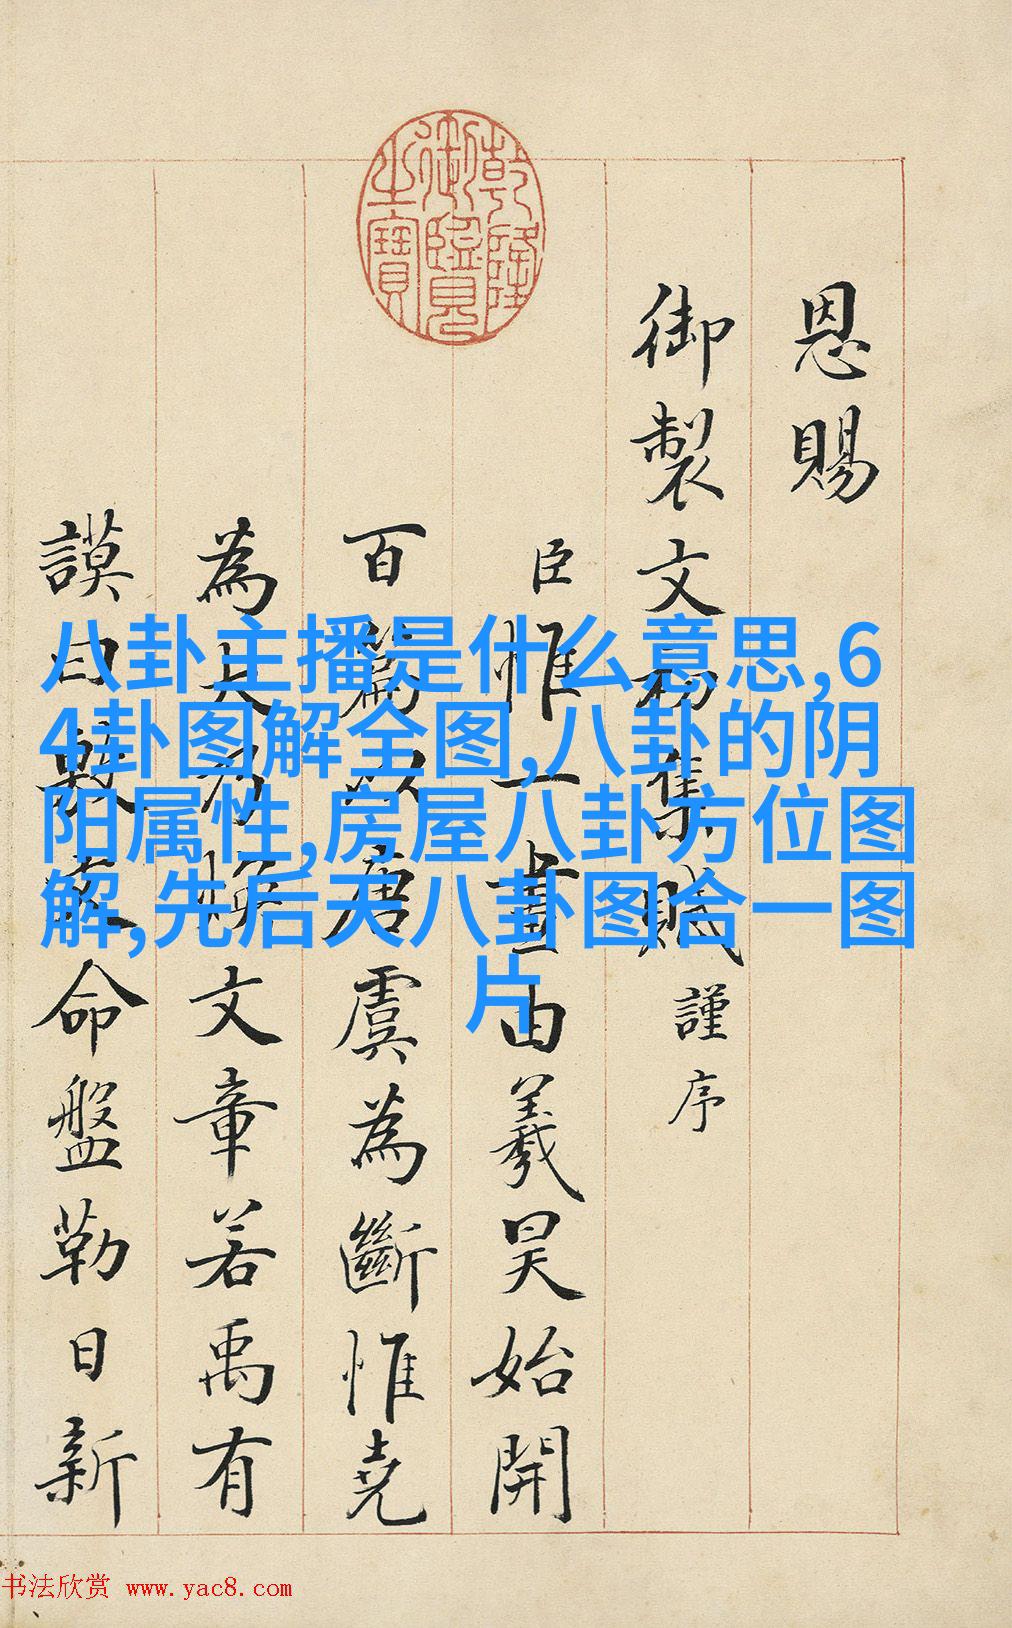 乾隆
御覽
之寶
恩賜
御製文初集賦謹序
臣惟一畫由羲昊始開
百篇以唐虞為斷惟堯
為大乃煥文章若禹有
謨曰敷文命盤勒日新
八卦主播是什么意思,6
4卦图解全图,八卦的阴
阳属性,房屋八卦方位图
解,先后天八卦图合一图
片
书法欣赏 www.yac8.com